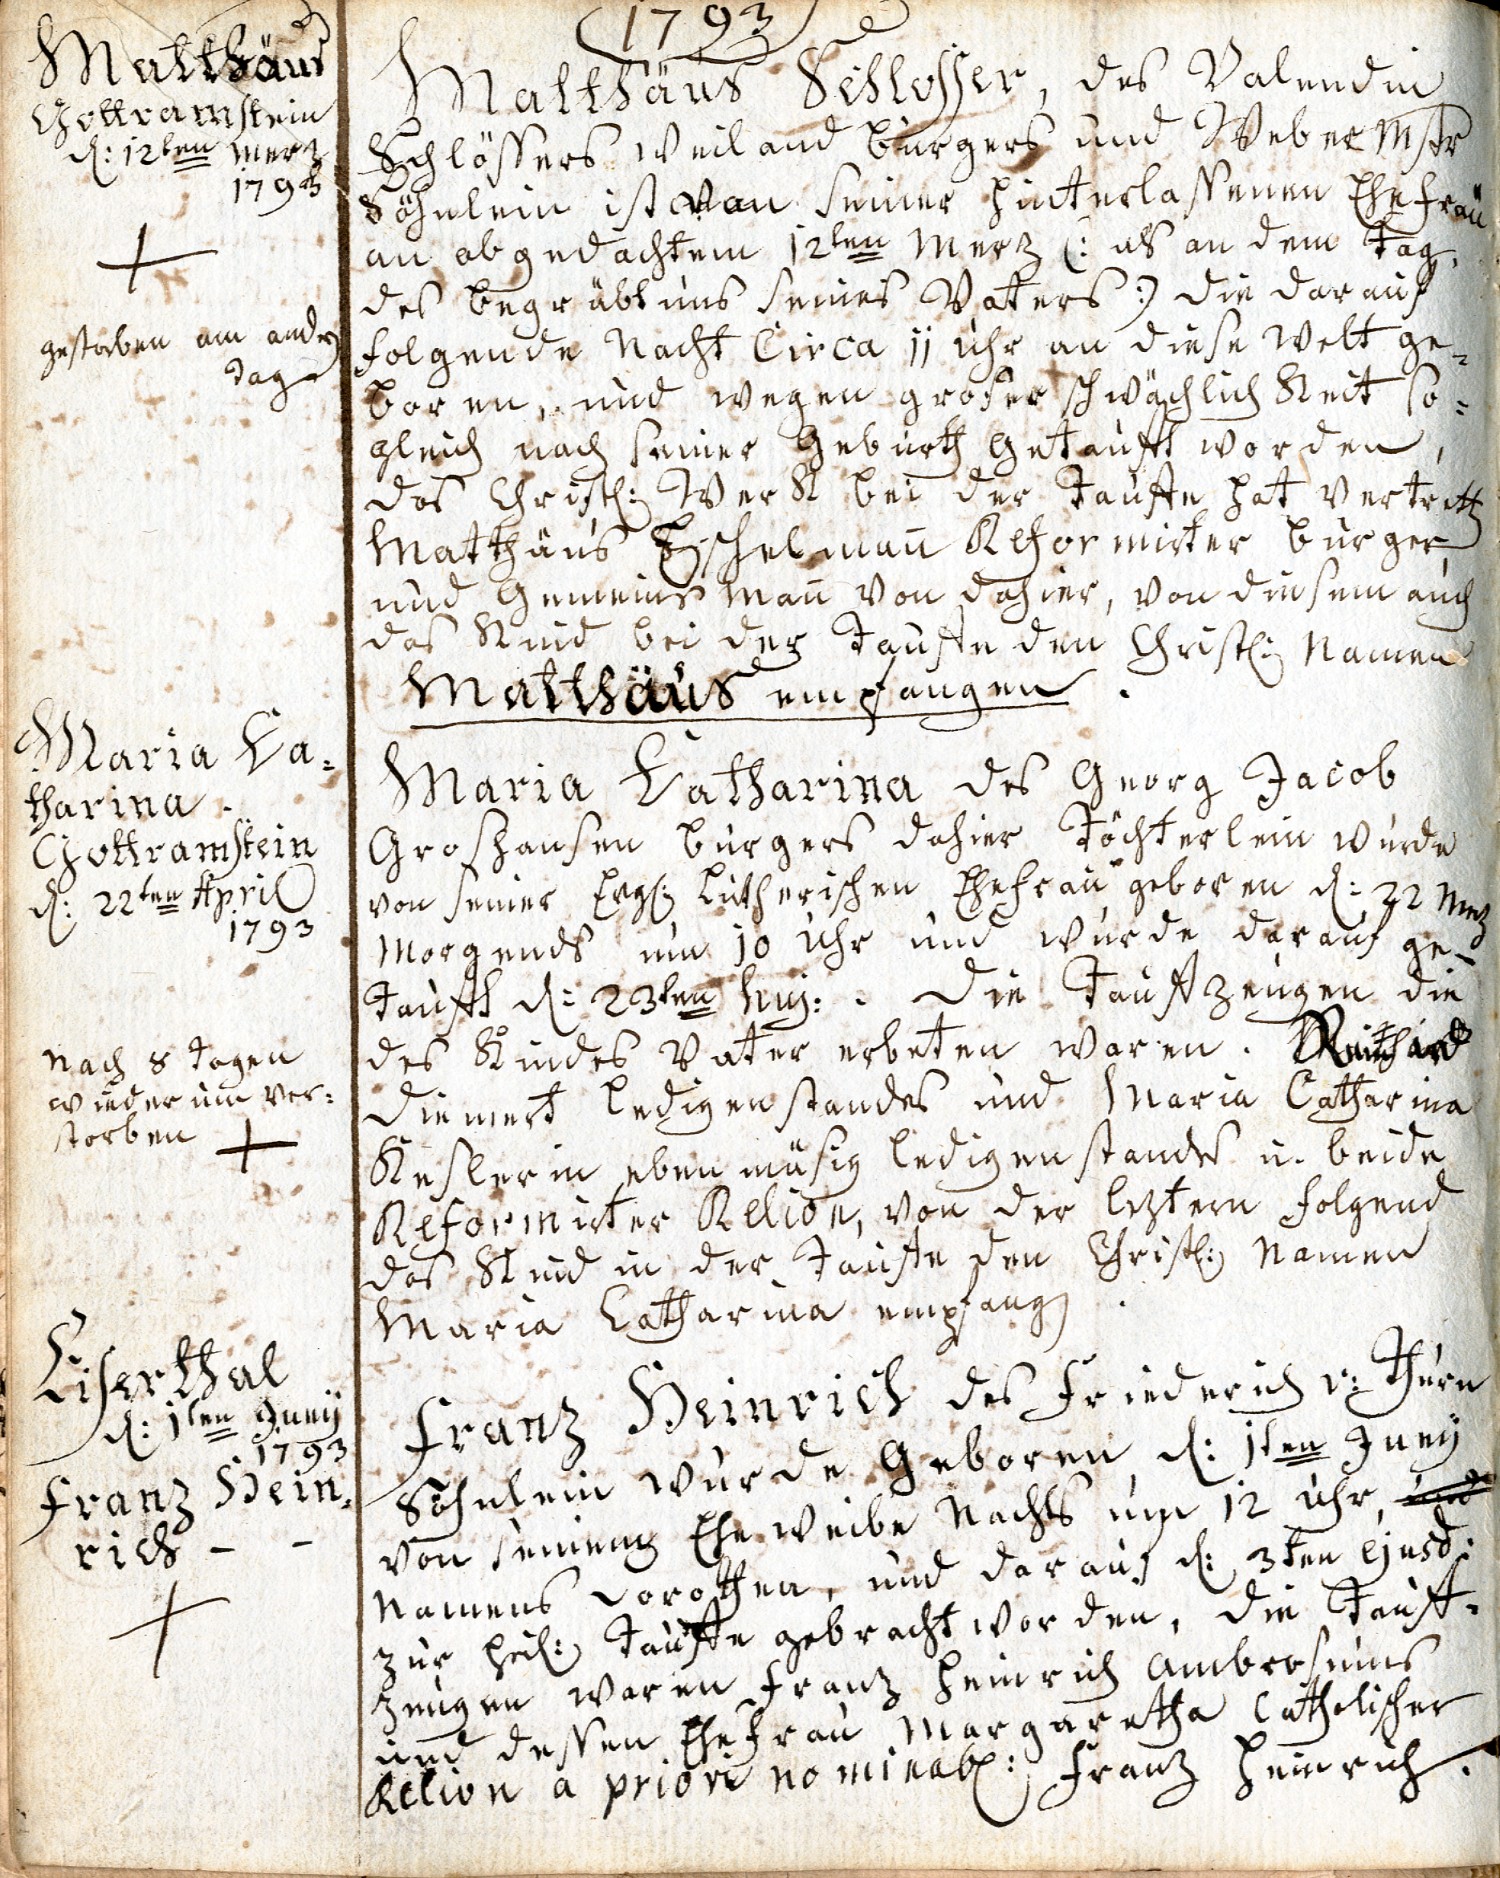 1793
Matthäus
Gottramstein
d: 12ten Merz
1793
gestorben am andern
Tage
Matthäus Schlosser, des Valendin
Schlössers weiland burgers und Weber Mstr
Söhnlein ist von seiner hinterlassenen Ehefrau
an obgedachtem 12ten Merz (: als an dem Tag
des begräbtnus seines Vaters :) die darauf
folgende Nacht Circa 11 Uhr an diese Welt ge=
boren, und wegen groser schwächlichkeit so=
gleich nach seiner Geburth getaufft worden,
das Christl: Werk bei der Tauffe hat vertretten
Matthäus Eschelman̄ Reformirter burger
und Gemeins Man̄ von dahier, von diesem auch
das Kind bei der Tauffe den Christl: Namen
Matthäus empfangen.
Maria Ca=
tharina.
Gottramstein
d: 22ten April
1793
Nach 8 Tagen
wiederum ver=
storben
Maria Catharina des Georg Jacob
Groshansen burgers dahier Töchterlein wurde
von seiner Evgl: Lutherischen Ehefrau geboren d: 22 Merz
Morgends um 10 Uhr und wurde darauf ge=
taufft d: 23ten huj: . Die Taufzeugen die
des Kindes Vater erbeten waren. Reinhard
Diemert ledigenstandes und Maria Catharina
Keslerin ebenmäsig ledigenstands u. beide
Reformirter Relion, von der leztern folgend
das Kind in der Tauffe den Christl: Namen
Maria Catharina empfangen.
Eiserthal
d: 1ten Juny
1793
Franz Hein=
rich - -
Franz Heinrich des Friederich v: Thurn
Söhnlein wurde Geboren, d: 1ten Juny
von seinem Eheweibe Nachts um 12 Uhr, und
Namens Dorothea, und darauf d: 3ten ejusd:
zur heil: Tauffe gebracht worden, die Tauff=
zeugen waren Franz Heinrich Ambrosius
und dessen Ehefrau Margaretha Catholischer
Relion a priori nominab: Franz Heinrich.